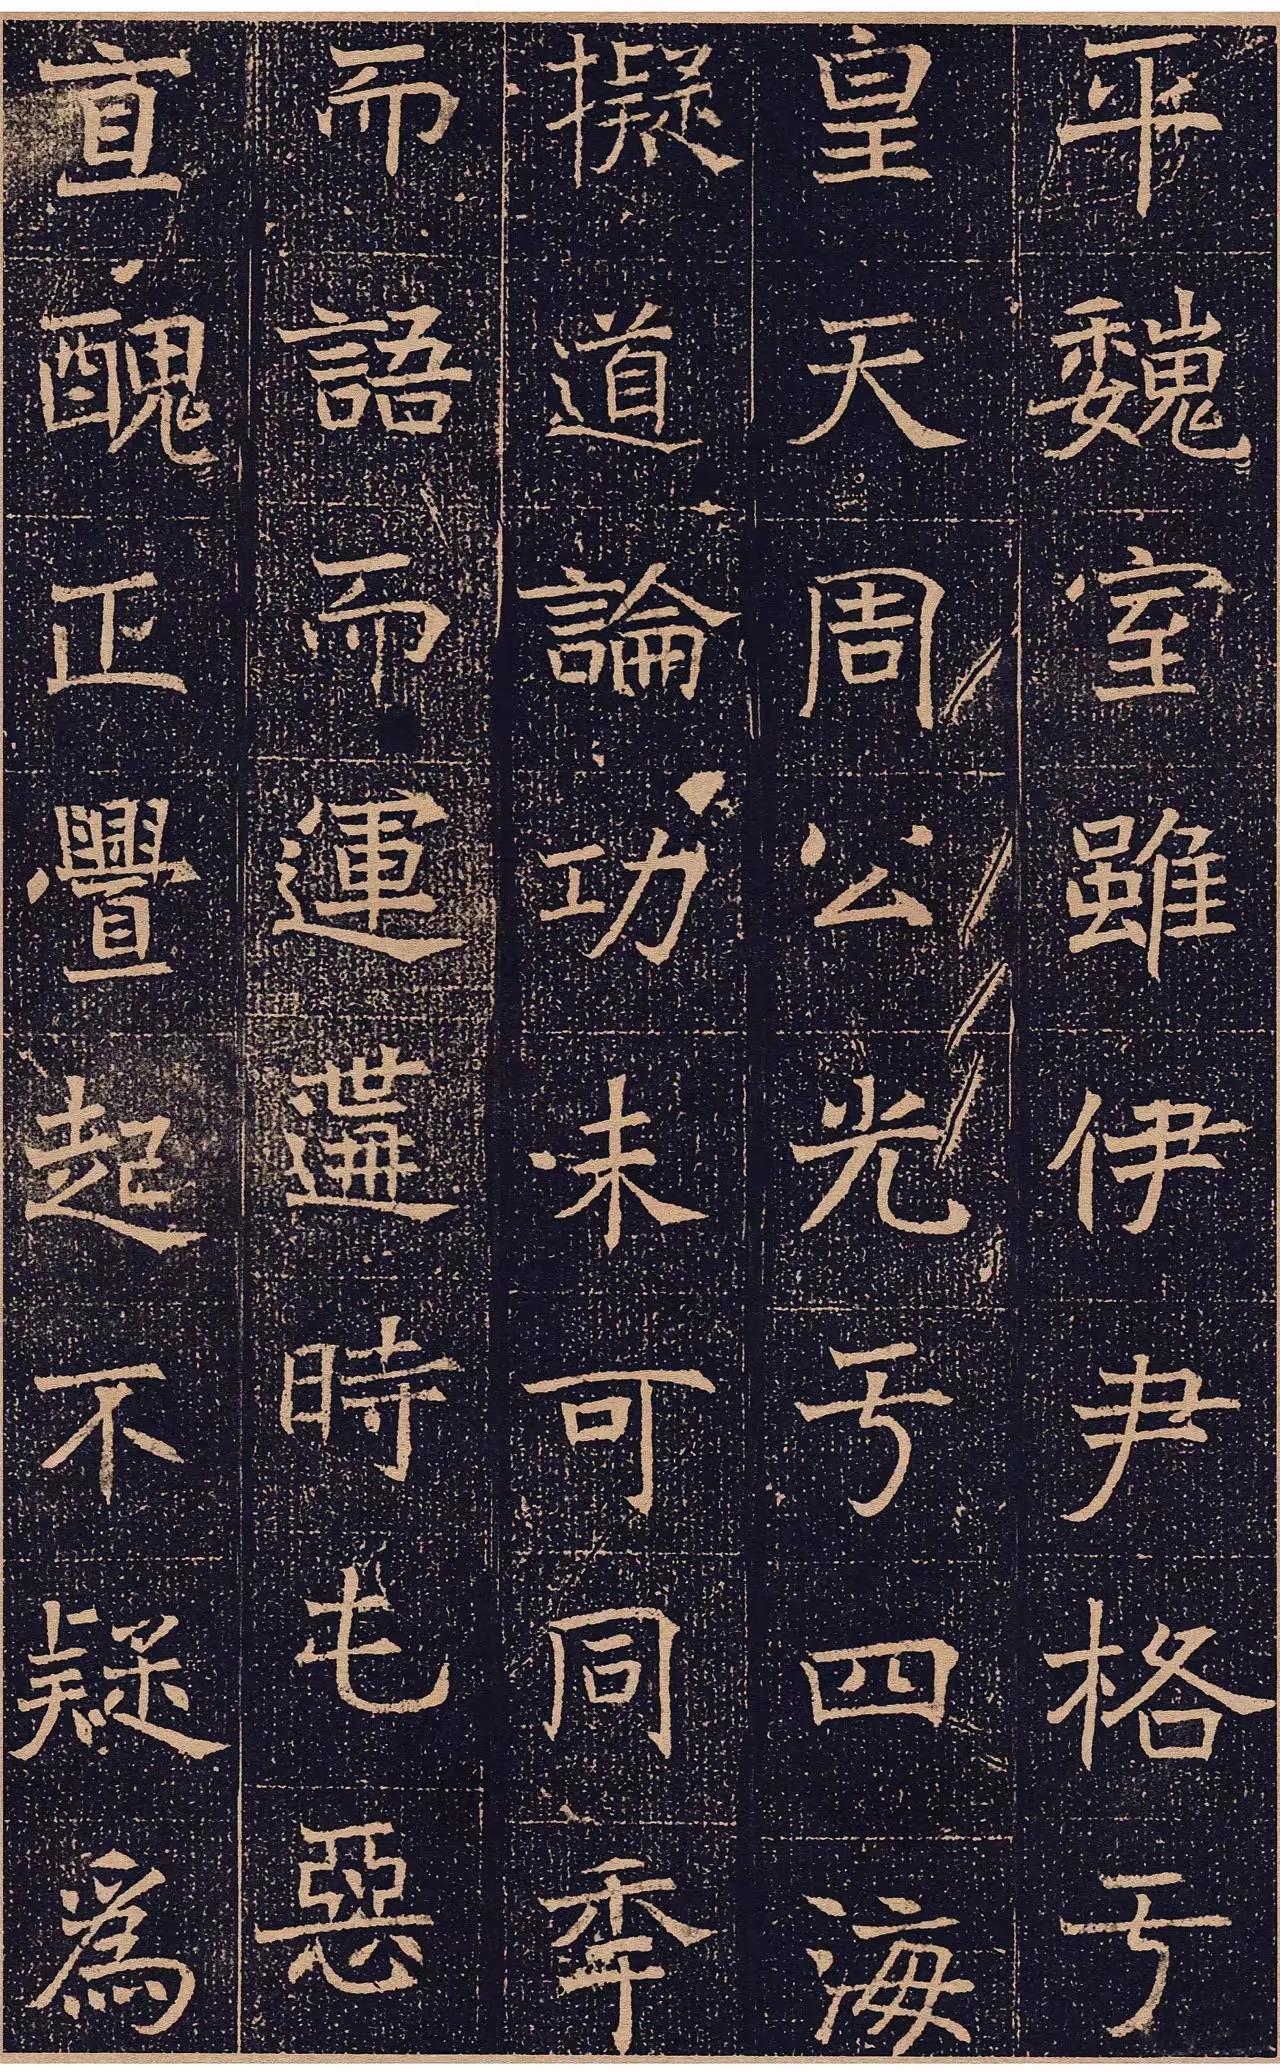 平魏室雖伊尹格亏
皇天周公光亏四海
擬道論功未可同秊
而語而運遘時屯惡
直醜正舋起不疑爲